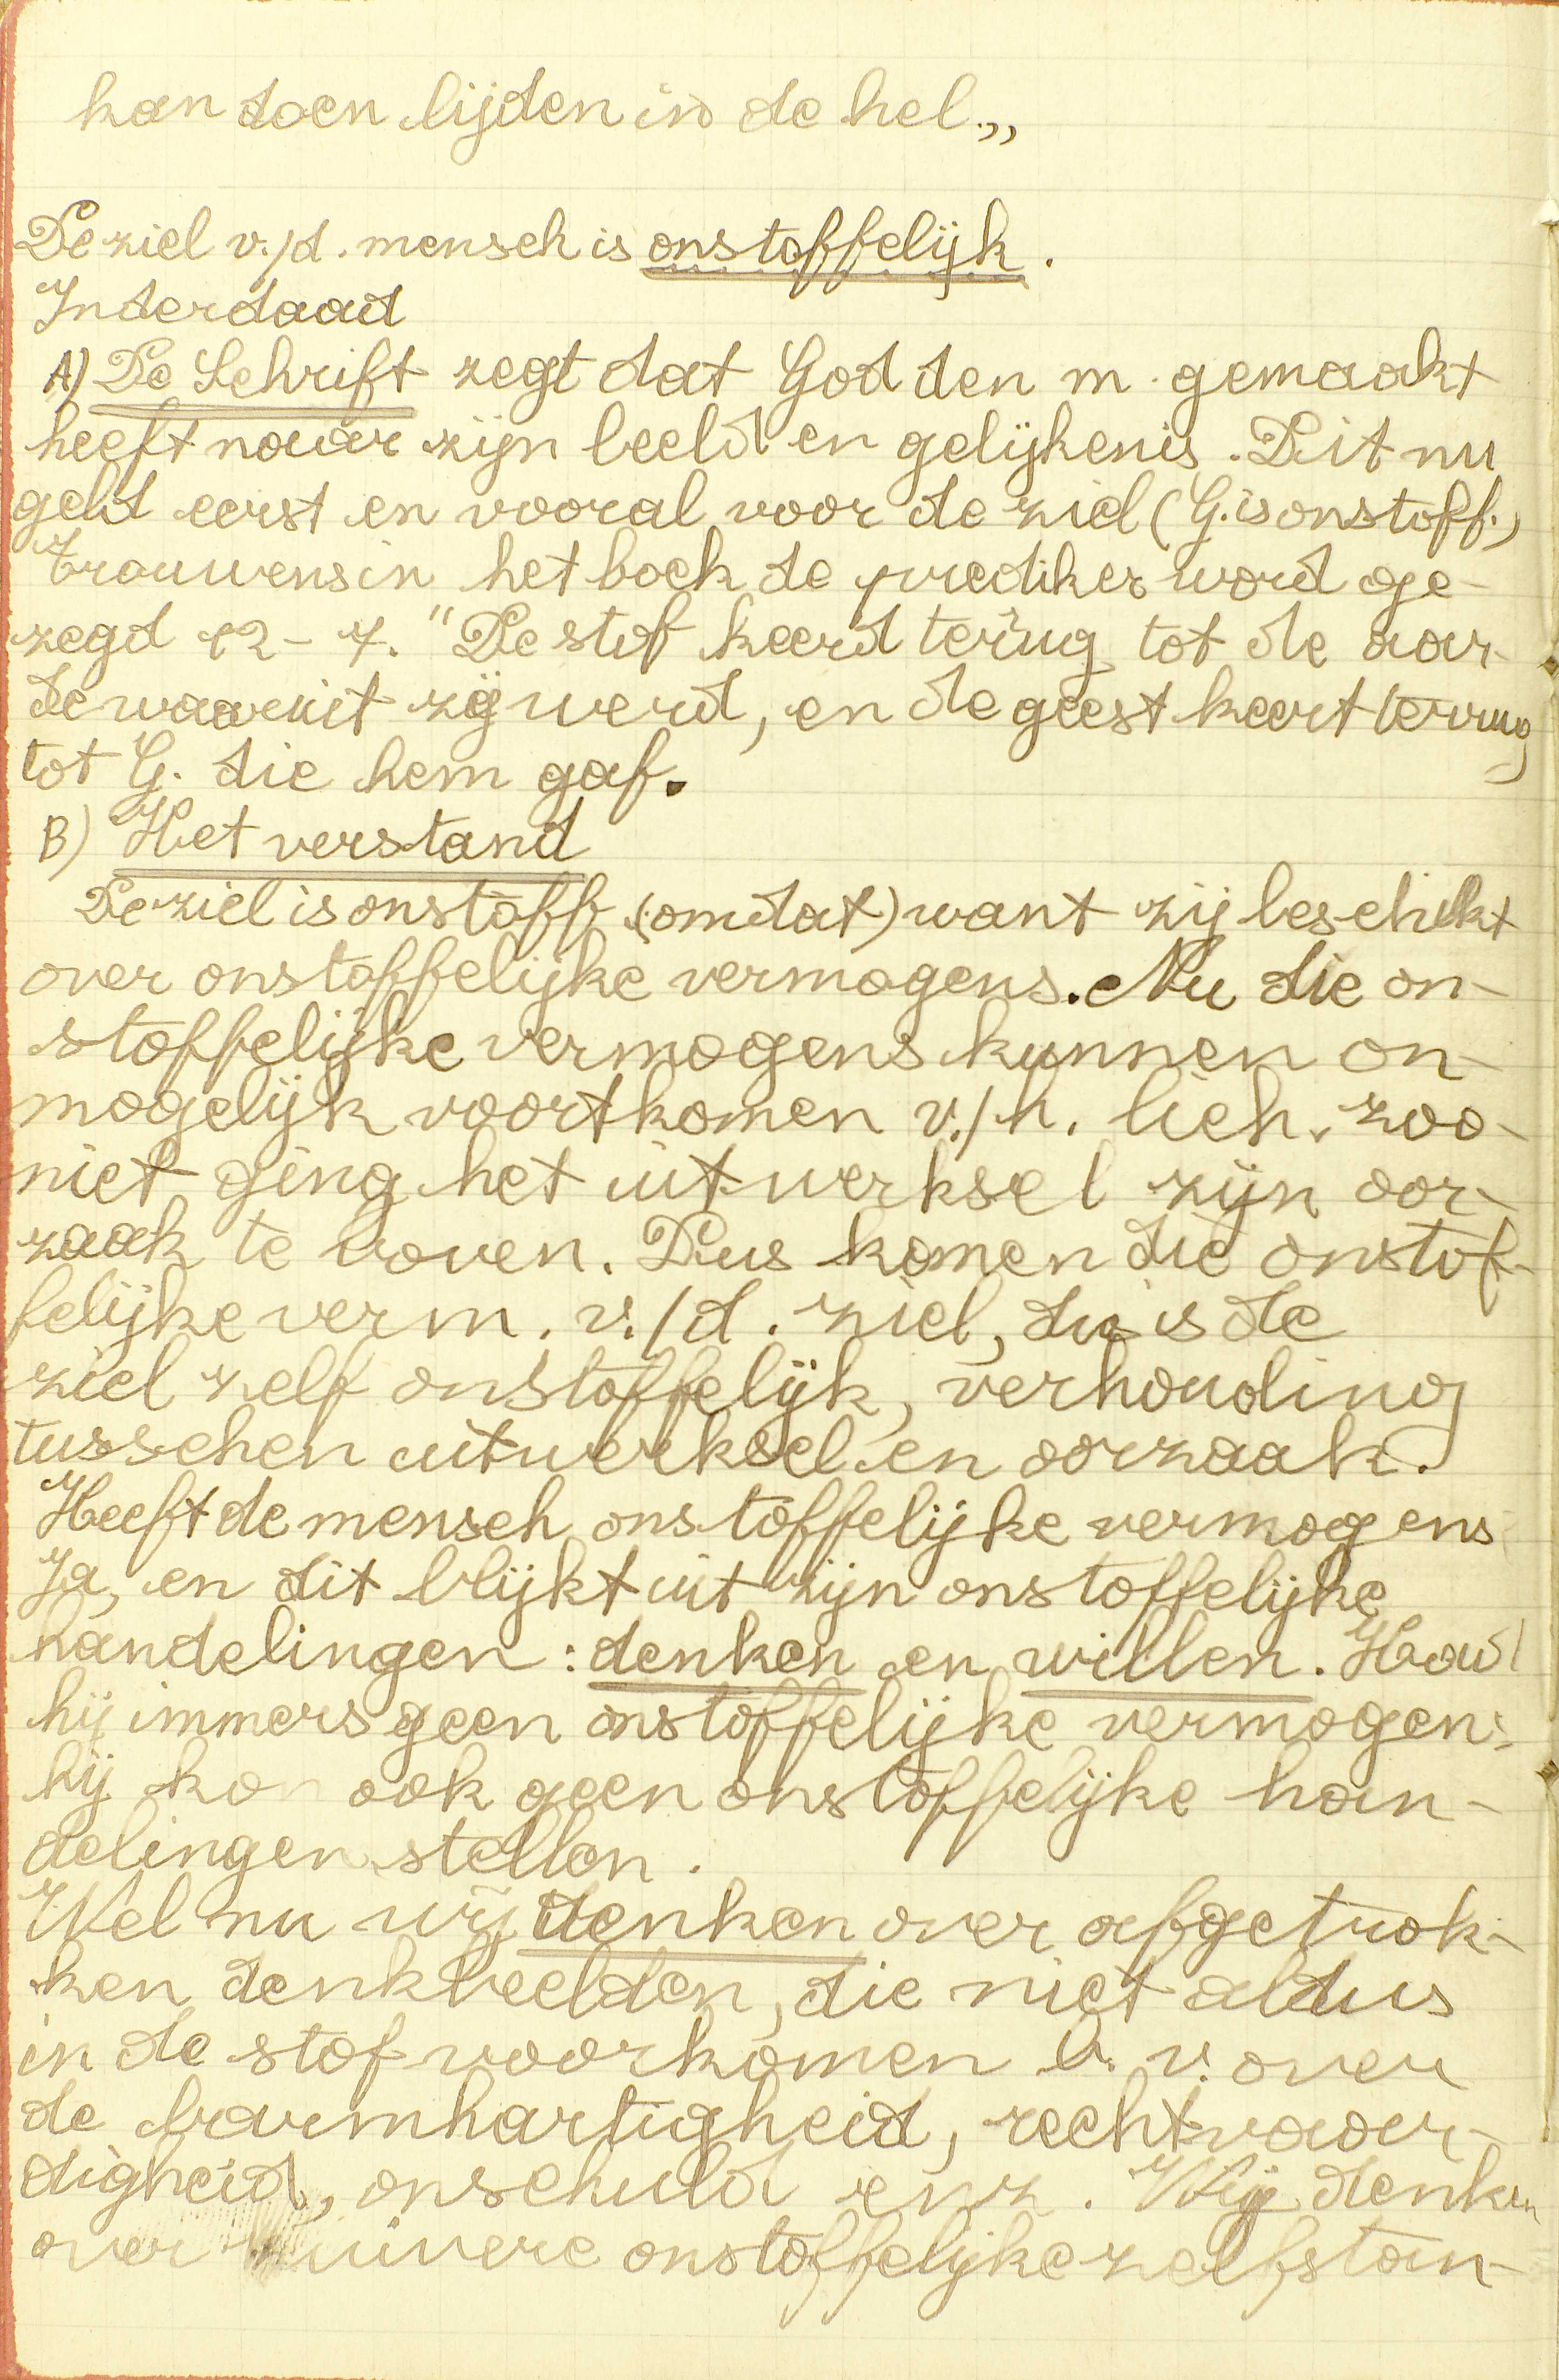 kan doen lijden in de hel.,,
De ziel v./d. mensch is onstoffelijk.
Inderdaad
A) De Schrift zegt dat God den m. gemaakt
heeft naar zijn beeld en gelijkenis. Dit nu
geld eerst en vooral voor de ziel (G. is onstoff.)
Trouwens in het boek de prediker word ge-
zegd 12-7. "De stof keerd terug tot de aar-
de waaruit zij werd, en de geest keert terrug
tot G. die hem gaf.
B) Het verstand
De ziel is onstoff. (omdat) want zij beschikt
over onstoffelijke vermogens. Nu die on-
stoffelijke vermogens kunnen on-
mogelijk voortkomen v./h. lich. zoo-
niet ging het uitwerksel zijn oor-
zaak te boven. Dus komen die onstof-
felijke verm. v./d. ziel, dus is de
ziel zelf onstoffelijk, verhouding
tusschen uitwerksel en oorzaak.
Heeft de mensch onstoffelijke vermogens
Ja, en dit blijkt uit zijn onstoffelijke
handelingen: denken en willen. Had
hij immers geen onstoffelijke vermogens
hij kon ook geen onstoffelijke han-
delingen stellen.
Wel nu wij denken over afgetrok-
ken denkbeelden, die niet aldus
in de stof voorkomen b.v. over
de barmhartigheid, rechtvaar-
digheid, onschuld enz. Wij denken
over zuivere onstoffelijke zelfstan-